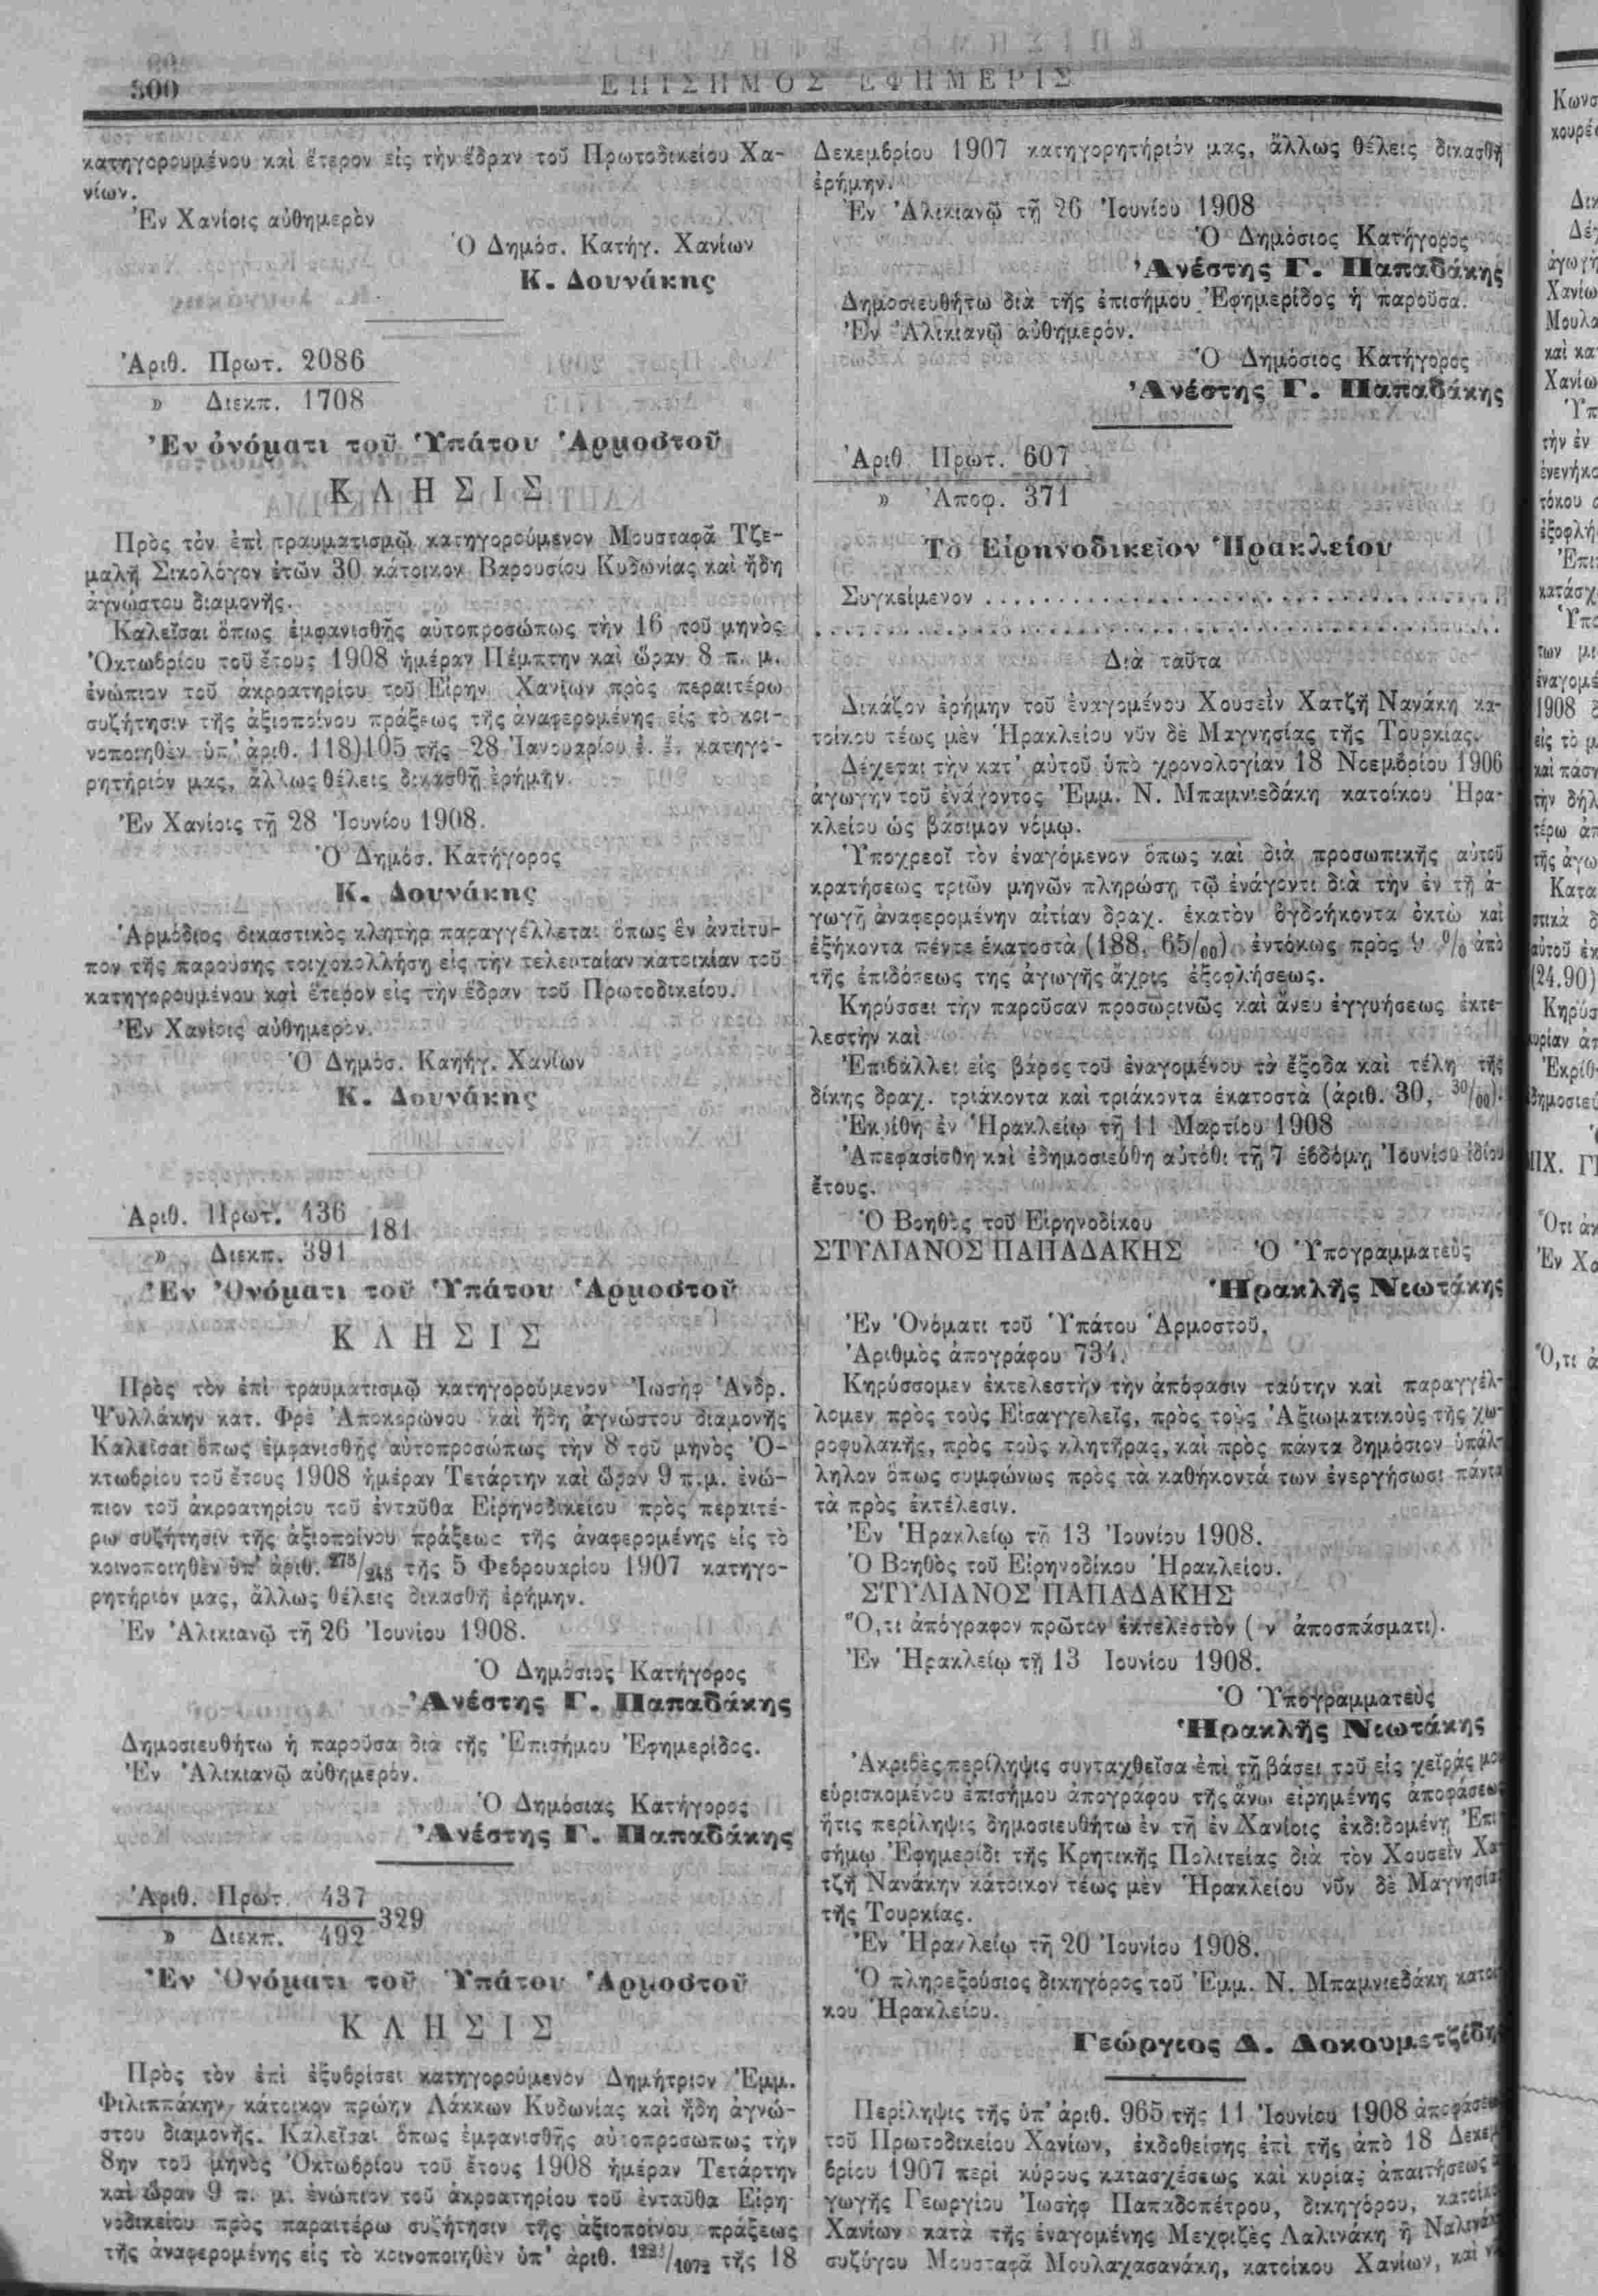 300
ΕΠΙΣΗΜΟΣ ΕΦΗΜΕΡΙΣ
κατηγορουμένου καὶ ἕτερον εἰς τὴν ἕδραν τοῦ Πρωτοδικείου Χα-
νίων.
Ἐν Χανίοις αὐθημερὸν
Ὁ Δημόσ. Κατήγ. Χανίων
Κ. Δουνάκης
Ἀριθ. Πρωτ. 2086
» Διεκπ. 1708
Ἐν ὀνόματι τοῦ Ὑπάτου Ἁρμοστοῦ
ΚΛΗΣΙΣ
Πρὸς τὸν ἐπὶ τραυματισμῷ κατηγορούμενον Μουσταφᾶ Τζε-
μαλῆ Σικολόγον ἐτῶν 30 κάτοικον Βαρουσίου Κυδωνίας καὶ ἤδη
ἀγνώστου διαμονῆς.
Καλεῖσαι ὅπως ἐμφανισθῇς αὐτοπροσώπως τὴν 16 τοῦ μηνὸς
Ὀκτωβρίου τοῦ ἔτους 1908 ἡμέραν Πέμπτην καὶ ὥραν 8 π. μ.
ἐνώπιον τοῦ ἀκροατηρίου τοῦ Εἰρην. Χανίων πρὸς περαιτέρω
συζήτησιν τῆς ἀξιοποίνου πράξεως τῆς ἀναφερομένης εἰς τὸ κοι-
νοποιηθὲν ὑπ' ἀριθ. 118)105 τῆς 28 Ἰανουαρίου ἐ. ἔ. κατηγο-
ρητήριόν μας, ἄλλως θέλεις δικασθῆ ἐρήμην.
Ἐν Χανίοις τῇ 28 Ἰουνίου 1908.
Ὁ Δημόσ. Κατήγορος
Κ. Δουνάκης
Ἁρμόδιος δικαστικὸς κλητὴρ παραγγέλλεται ὅπως ἓν ἀντίτυ-
πον τῆς παρούσης τοιχοκολλήσῃ εἰς τὴν τελευταίαν κατοικίαν τοῦ
κατηγορουμένου καὶ ἕτερον εἰς τὴν ἕδραν τοῦ Πρωτοδικείου.
Ἐν Χανίοις αὐθημερόν.
Ὁ Δημόσ. Καήήγ. Χανίων
Κ. Δουνάκης
Ἀριθ. Πρωτ. 436
181
» Διεκπ. 391
Ἐν Ὀνόματι τοῦ Ὑπάτου Ἁρμοστοῦ
ΚΛΗΣΙΣ
Πρὸς τὸν ἐπὶ τραυματισμῷ κατηγορούμενον Ἰωσὴφ Ἀνδρ.
Ψυλλάκην κατ. Φρὲ Ἀποκορώνου καὶ ἤδη ἀγνώστου διαμονῆς
Καλεῖσαι ὅπως ἐμφανισθῇς αὐτοπροσώπως τὴν 8 τοῦ μηνὸς Ὀ-
κτωβρίου τοῦ ἔτους 1908 ἡμέραν Τετάρτην καὶ ὥραν 9 π.μ. ἐνώ-
πιον τοῦ ἀκροατηρίου τοῦ ἐνταῦθα Εἰρηνοδικείου πρὸς περαιτέ-
ρω συζήτησιν τῆς ἀξιοποίνου πράξεως τῆς ἀναφερομένης εἰς τὸ
κοινοποιηθὲν ὑπ' ἀριθ. 275/245 τῆς 5 Φεβρουαρίου 1907 κατηγο-
ρητήριόν μας, ἄλλως θέλεις δικασθῆ ἐρήμην.
Ἐν Ἀλικιανῷ τῇ 26 Ἰουνίου 1908.
Ὁ Δημόσιος Κατήγορος
Ἀνέστης Γ. Παπαδάκης
Δημοσιευθήτω ἡ παροῦσα διὰ τῆς Ἐπισήμου Ἐφημερίδος.
Ἐν Ἀλικιανῷ αὐθημερόν.
Ὁ Δημόσιας Κατήγορος
Ἀνέστης Γ. Παπαδάκης
Ἀριθ. Πρωτ. 437
329
» Διεκπ. 492
Ἐν Ὀνόματι τοῦ Ὑπάτου Ἁρμοστοῦ
ΚΛΗΣΙΣ
Πρὸς τὸν ἐπὶ ἐξυβρίσει κατηγορούμενον Δημήτριον Ἐμμ.
Φιλιππάκην κάτοικον πρώην Λάκκων Κυδωνίας καὶ ἤδη ἀγνώ-
στου διαμονῆς. Καλεῖσαι ὅπως ἐμφανισθῇς αὐτοπροσώπως τὴν
8ην τοῦ μηνὸς Ὀκτωβρίου τοῦ ἔτους 1908 ἡμέραν Τετάρτην
καὶ ὥραν 9 π. μ. ἐνώπιον τοῦ ἀκροατηρίου τοῦ ἐνταῦθα Εἰρη-
νοδικείου πρὸς παραιτέρω συζήτησιν τῆς ἀξιοποίνου πράξεως
τῆς ἀναφερομένης εἰς τὸ κοινοποιηθὲν ὑπ' ἀριθ. /1072 τῆς 18
Δεκεμβρίου 1907 κατηγορητήριόν μας, ἄλλως θέλεις δικασθῆ
ἐρήμην.
Ἐν Ἀλικιανῷ τῇ 26 Ἰουνίου 1908
Ὁ Δημόσιος Κατήγορος
Ἀνέστης Γ. Παπαδάκης
Δημοσιευθήτω διὰ τῆς ἐπισήμου Ἐφημερίδος ἡ παροῦσα.
Ἐν Ἀλικιανῷ αὐθημερόν.
Ὁ Δημόσιος Κατήγορος
Ἀνέστης Γ. Παπαδάκης
Ἀριθ. Πρωτ. 607
» Ἀποφ. 371
Τὸ Εἰρηνοδικεῖον Ἡρακλείου
Συγκείμενον . . . . . . . . . . . . . . . . . . . .
. . . . . . . . . . . . . . . . . . . . . . . . . .
Διὰ ταῦτα
Δικάζον ἐρήμην τοῦ ἐναγομένου Χουσεῒν Χατζῆ Νανάκη κα-
τοίκου τέως μὲν Ἡρακλείου νῦν δὲ Μαγνησίας τῆς Τουρκίας.
Δέχεται τὴν κατ' αὐτοῦ ὑπὸ χρονολογίαν 18 Νοεμβρίου 1906
ἀγωγὴν τοῦ ἐνάγοντος Ἐμμ. Ν. Μπαμνιεδάκη κατοίκου Ἡρα-
κλείου ὡς βάσιμον νόμῳ.
Ὑποχρεοῖ τὸν ἐναγόμενον ὅπως καὶ διὰ προσωπικῆς αὐτοῦ
κρατήσεως τριῶν μηνῶν πληρώσῃ τῷ ἐνάγοντι διὰ τὴν ἐν τῇ ἀ-
γωγῇ ἀναφερομένην αἰτίαν δραχ. ἑκατὸν ὀγδοήκοντα ὀκτὼ καὶ
ἑξήκοντα πέντε ἑκατοστὰ (188, 65/00) ἐντόκως πρὸς 9 % ἀπὸ
τῆς ἐπιδόσεως της ἀγωγῆς ἄχρις ἐξοφλήσεως.
Κηρύσσει τὴν παροῦσαν προσωρινῶς καὶ ἄνευ ἐγγυήσεως ἐκτε-
λεστὴν καὶ
Ἐπιβάλλει εἰς βάρος τοῦ ἐναγομένου τὰ ἔξοδα καὶ τέλη τῆς
δίκης δραχ. τριάκοντα καὶ τριάκοντα ἑκατοστὰ (ἀριθ. 30, 30/00).
Ἐκρίθη ἐν Ἡρακλείῳ τῇ 11 Μαρτίου 1908
Ἀπεφασίσθη καὶ ἐδημοσιεύθη αὐτόθι τῇ 7 ἑβδόμῃ Ἰουνίου ἰδίου
ἔτους.
Ὁ Βοηθὸς τοῦ Εἰρηνοδίκου
ΣΤΥΛΙΑΝΟΣ ΠΑΠΑΔΑΚΗΣ Ὁ Ὑπογραμματεὺς
Ἡρακλῆς Νιωτάκης
Ἐν Ὀνόματι τοῦ Ὑπάτου Ἁρμοστοῦ.
Ἀριθμὸς ἀπογράφου 734.
Κηρύσσομεν ἐκτελεστὴν τὴν ἀπόφασιν ταύτην καὶ παραγγέλ-
λομεν πρὸς τοὺς Εἰσαγγελεῖς, πρὸς τοὺς Ἀξιωματικοὺς τῆς χω-
ροφυλακῆς, πρὸς τοὺς κλητῆρας, καὶ πρὸς πάντα δημόσιον ὑπάλ-
ληλον ὅπως συμφώνως πρὸς τὰ καθήκοντά των ἐνεργήσωσι πάντα
τὰ πρὸς ἐκτέλεσιν.
Ἐν Ἡρακλείῳ τῇ 13 Ἰουνίου 1908.
Ὁ Βοηθὸς τοῦ Εἰρηνοδίκου Ἡρακλείου.
ΣΤΥΛΙΑΝΟΣ ΠΑΠΑΔΑΚΗΣ
Ὅ,τι ἀπόγραφον πρῶτον ἐκτελεστὸν ( ν ἀποσπάσματι).
Ἐν Ἡρακλείῳ τῇ 13 Ιουνίου 1908.
Ὁ Ὑπογραμματεὺς
Ἡρακλῆς Νιωτάκης
Ἀκριβὲς περίληψις συνταχθεῖσα ἐπὶ τῇ βάσει τοῦ εἰς χεῖράς μου
εὑρισκομένου ἐπισήμου ἀπογράφου τῆς ἄνω εἰρημένης ἀποφάσεως
ἥτις περίληψις δημοσιευθήτω ἐν τῇ ἐν Χανίοις ἐκδιδομένῃ Ἐπι-
σήμῳ Ἐφημερίδι τῆς Κρητικῆς Πολιτείας διὰ τὸν Χουσεῒν Χα-
τζῆ Νανάκην κάτοικον τέως μὲν Ἡρακλείου νῦν δὲ Μαγνησίας
τῆς Τουρκίας.
Ἐν Ἡρακλείῳ τῇ 20 Ἰουνίου 1908.
Ὁ πληρεξούσιος δικηγόρος τοῦ Ἐμμ. Ν. Μπαμνιεδάκη κατοί-
κου Ἡρακλείου.
Γεώργιος Δ. Δοκουμετζίδης
Περίληψις τῆς ὑπ' ἀριθ. 965 τῆς 11 Ἰουνίου 1908 ἀποφάσεως
τοῦ Πρωτοδικείου Χανίων, ἐκδοθείσης ἐπὶ τῆς ἀπὸ 18 Δεκεμ
βρίου 1907 περὶ κύρους κατασχέσεως καὶ κυρίας ἀπαιτήσεως
γωγῆς Γεωργίου Ἰωσὴφ Παπαδοπέτρου, δικηγόρου, κατοίκου
Χανίων κατὰ τῆς ἐναγομένης Μεχφιζὲς Λαλινάκη ἢ Ναλινάκη
συζύγου Μουσταφᾶ Μουλαχασανάκη, κατοίκου Χανίων, καὶ